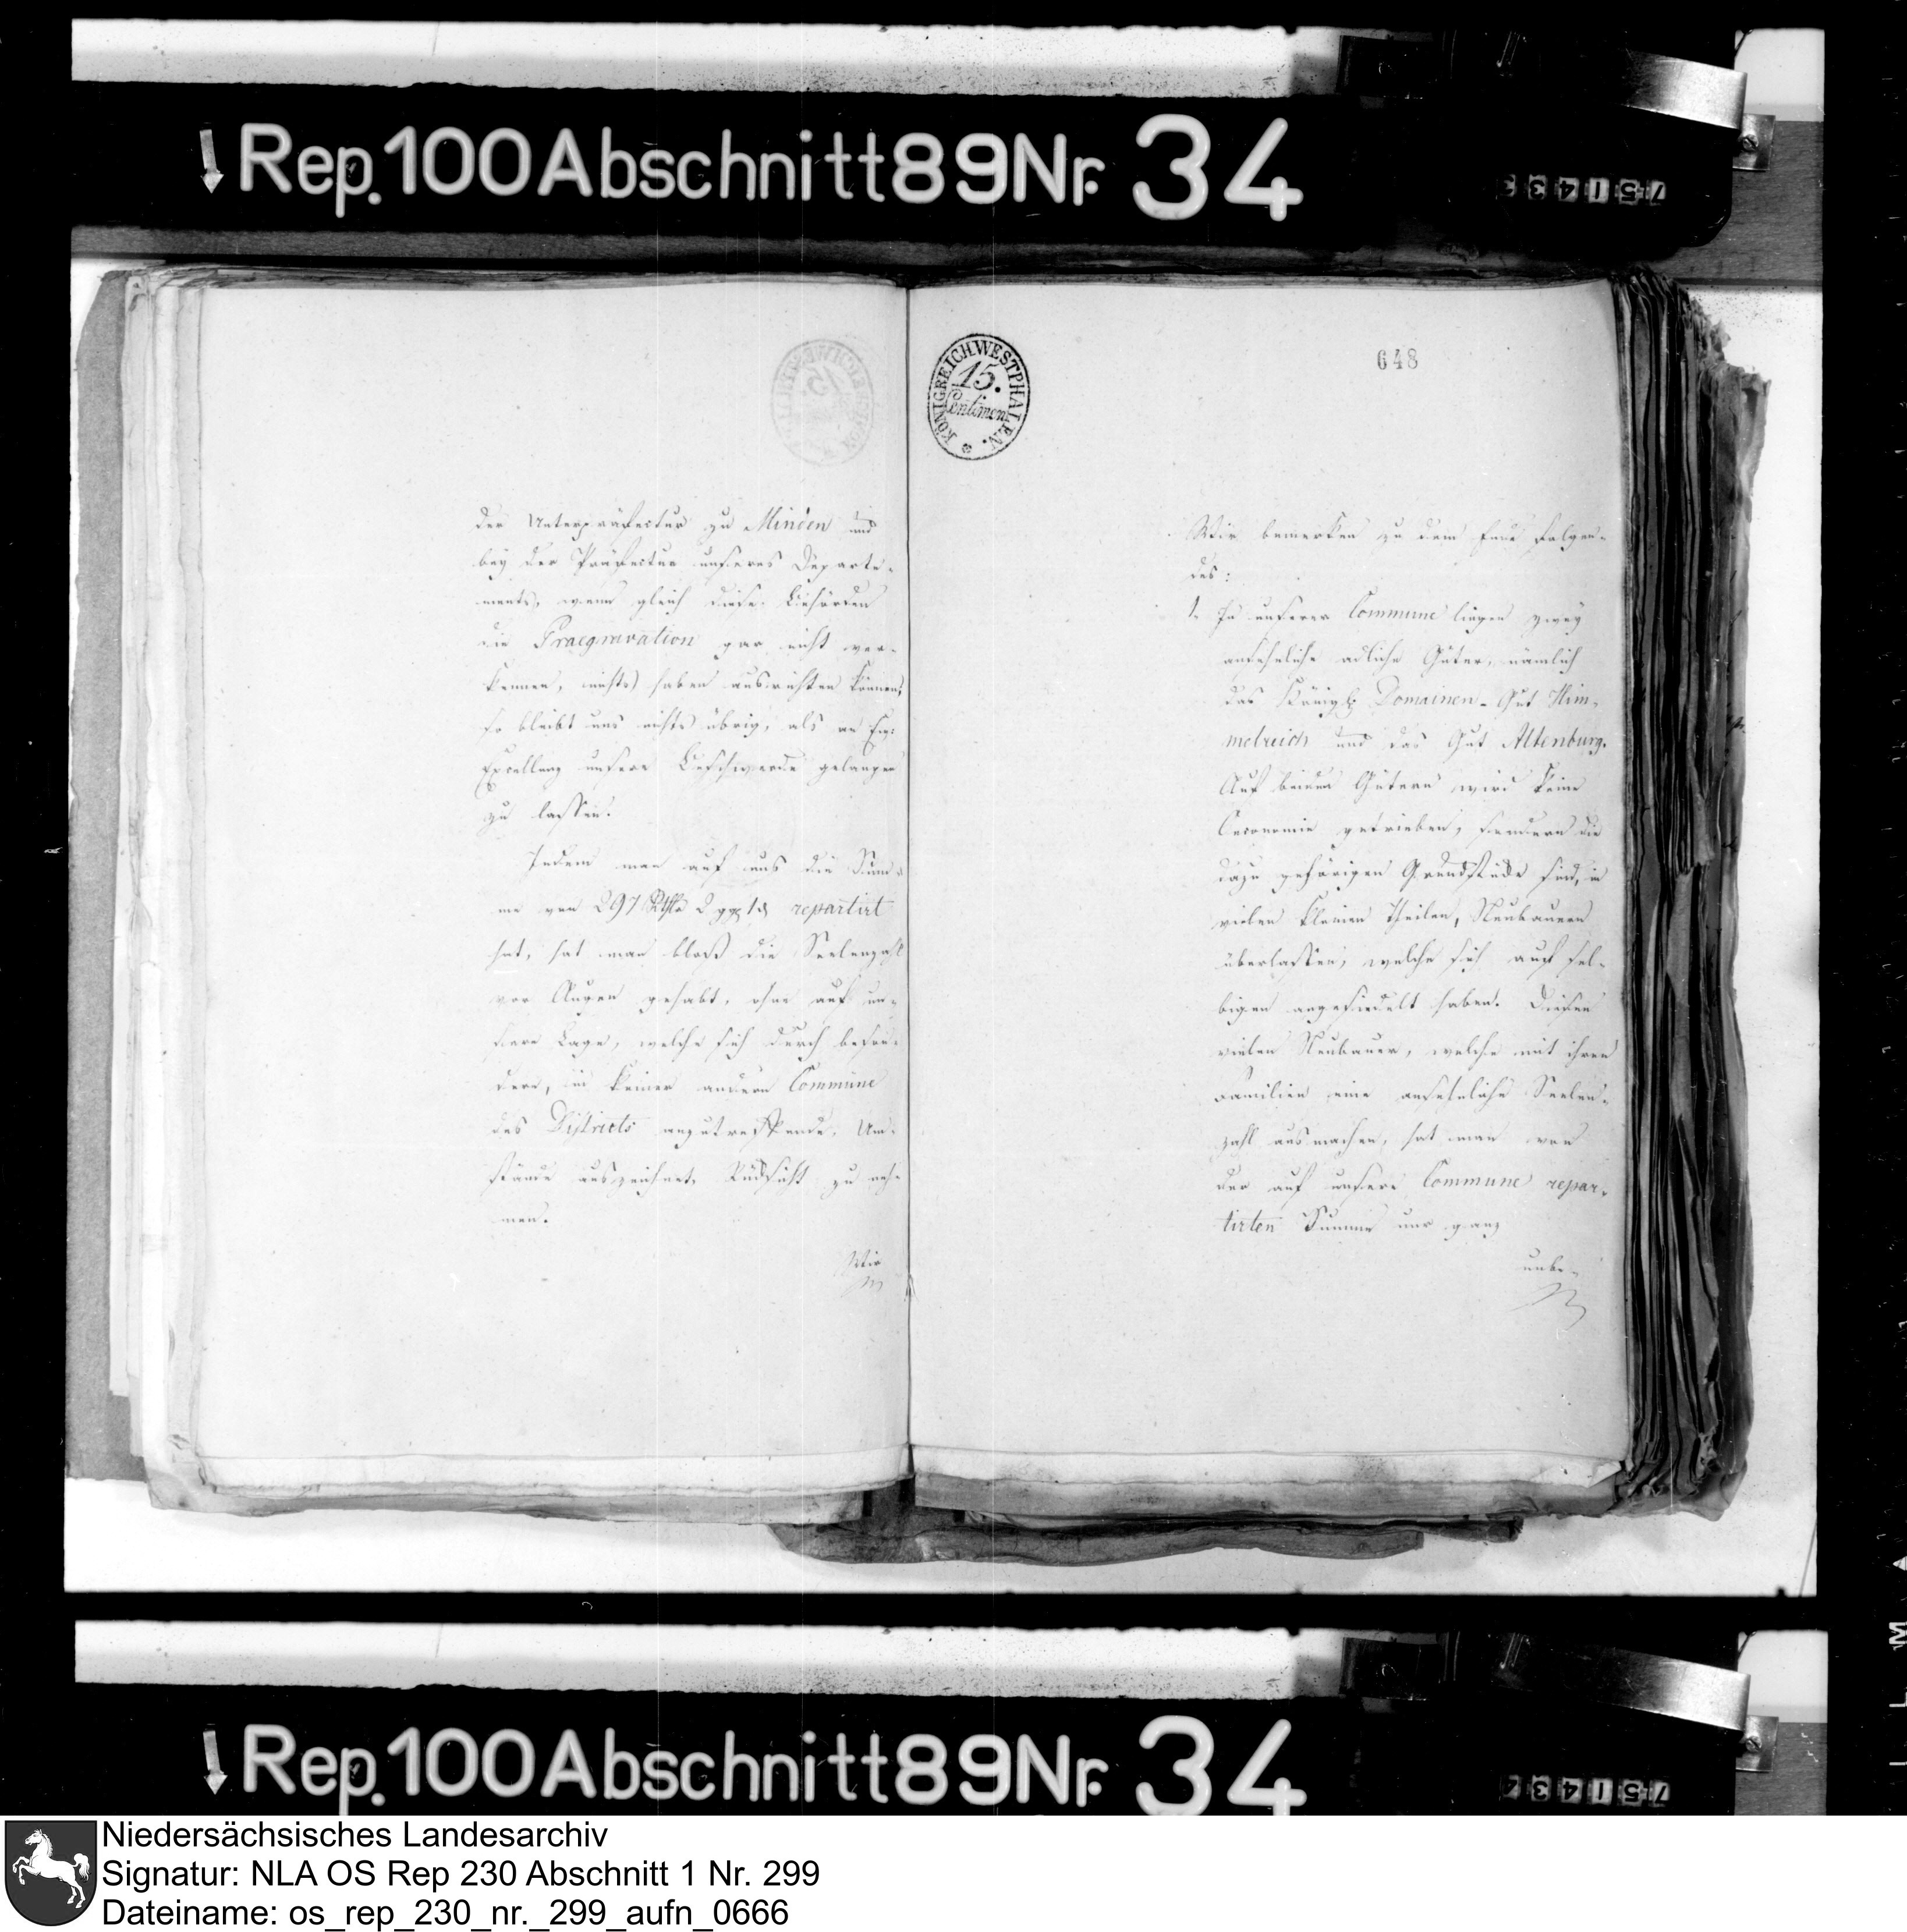 Rep. 100 Abschnitt 89 Nr. 34
751433
KÖNIGREICH WESTPHALEN.
15.
Centimen
648
der Unterpräfectur zu Minden und
bey der Präfectur unseres Departe-
ments, wenn gleich diese Behörden
die Praegravation gar nicht ver-
kennen, nichts haben ausrichten können,
so bleibt uns nichts übrig, als an Ew.
Excellenz unsere Beschwerde gelangen
zu lassen.
Indem man auf uns die Sum-
me von 297 Rthlr 2 ggr 1 d repartirt
hat, hat man bloß die Seelenzahl
vor Augen gehabt, ohne auf un-
sere Lage, welche sich durch beson-
dere, in keiner andern Commune
des Districts anzutreffende, Um-
stände auszeichnet, Rücksicht zu neh-
men.
Wir
Wir bemerken zu dem Ende Folgen-
des:
1. In unserer Commune liegen zwey
ansehnliche adliche Güter, nämlich
das Königl. Domainen-Gut Him-
melreich und das Gut Altenburg.
Auf beiden Gütern wird keine
Oeconomie getrieben, sondern die
dazu gehörigen Grundstücke sind, in
vielen kleinen Theilen, Neubauern
überlassen, welche sich auf sel-
bigen angesiedelt haben. Diesen
vielen Neubauer, welche mit ihren
Familien eine ansehnliche Seelen-
zahl ausmachen, hat man von
der auf unsere Commune repar-
tirten Summe nur ganz
unbe-
Rep. 100 Abschnitt 89 Nr. 34
751434
Niedersächsisches Landesarchiv
Signatur: NLA OS Rep 230 Abschnitt 1 Nr. 299
Dateiname: os_rep_230_nr._299_aufn_0666